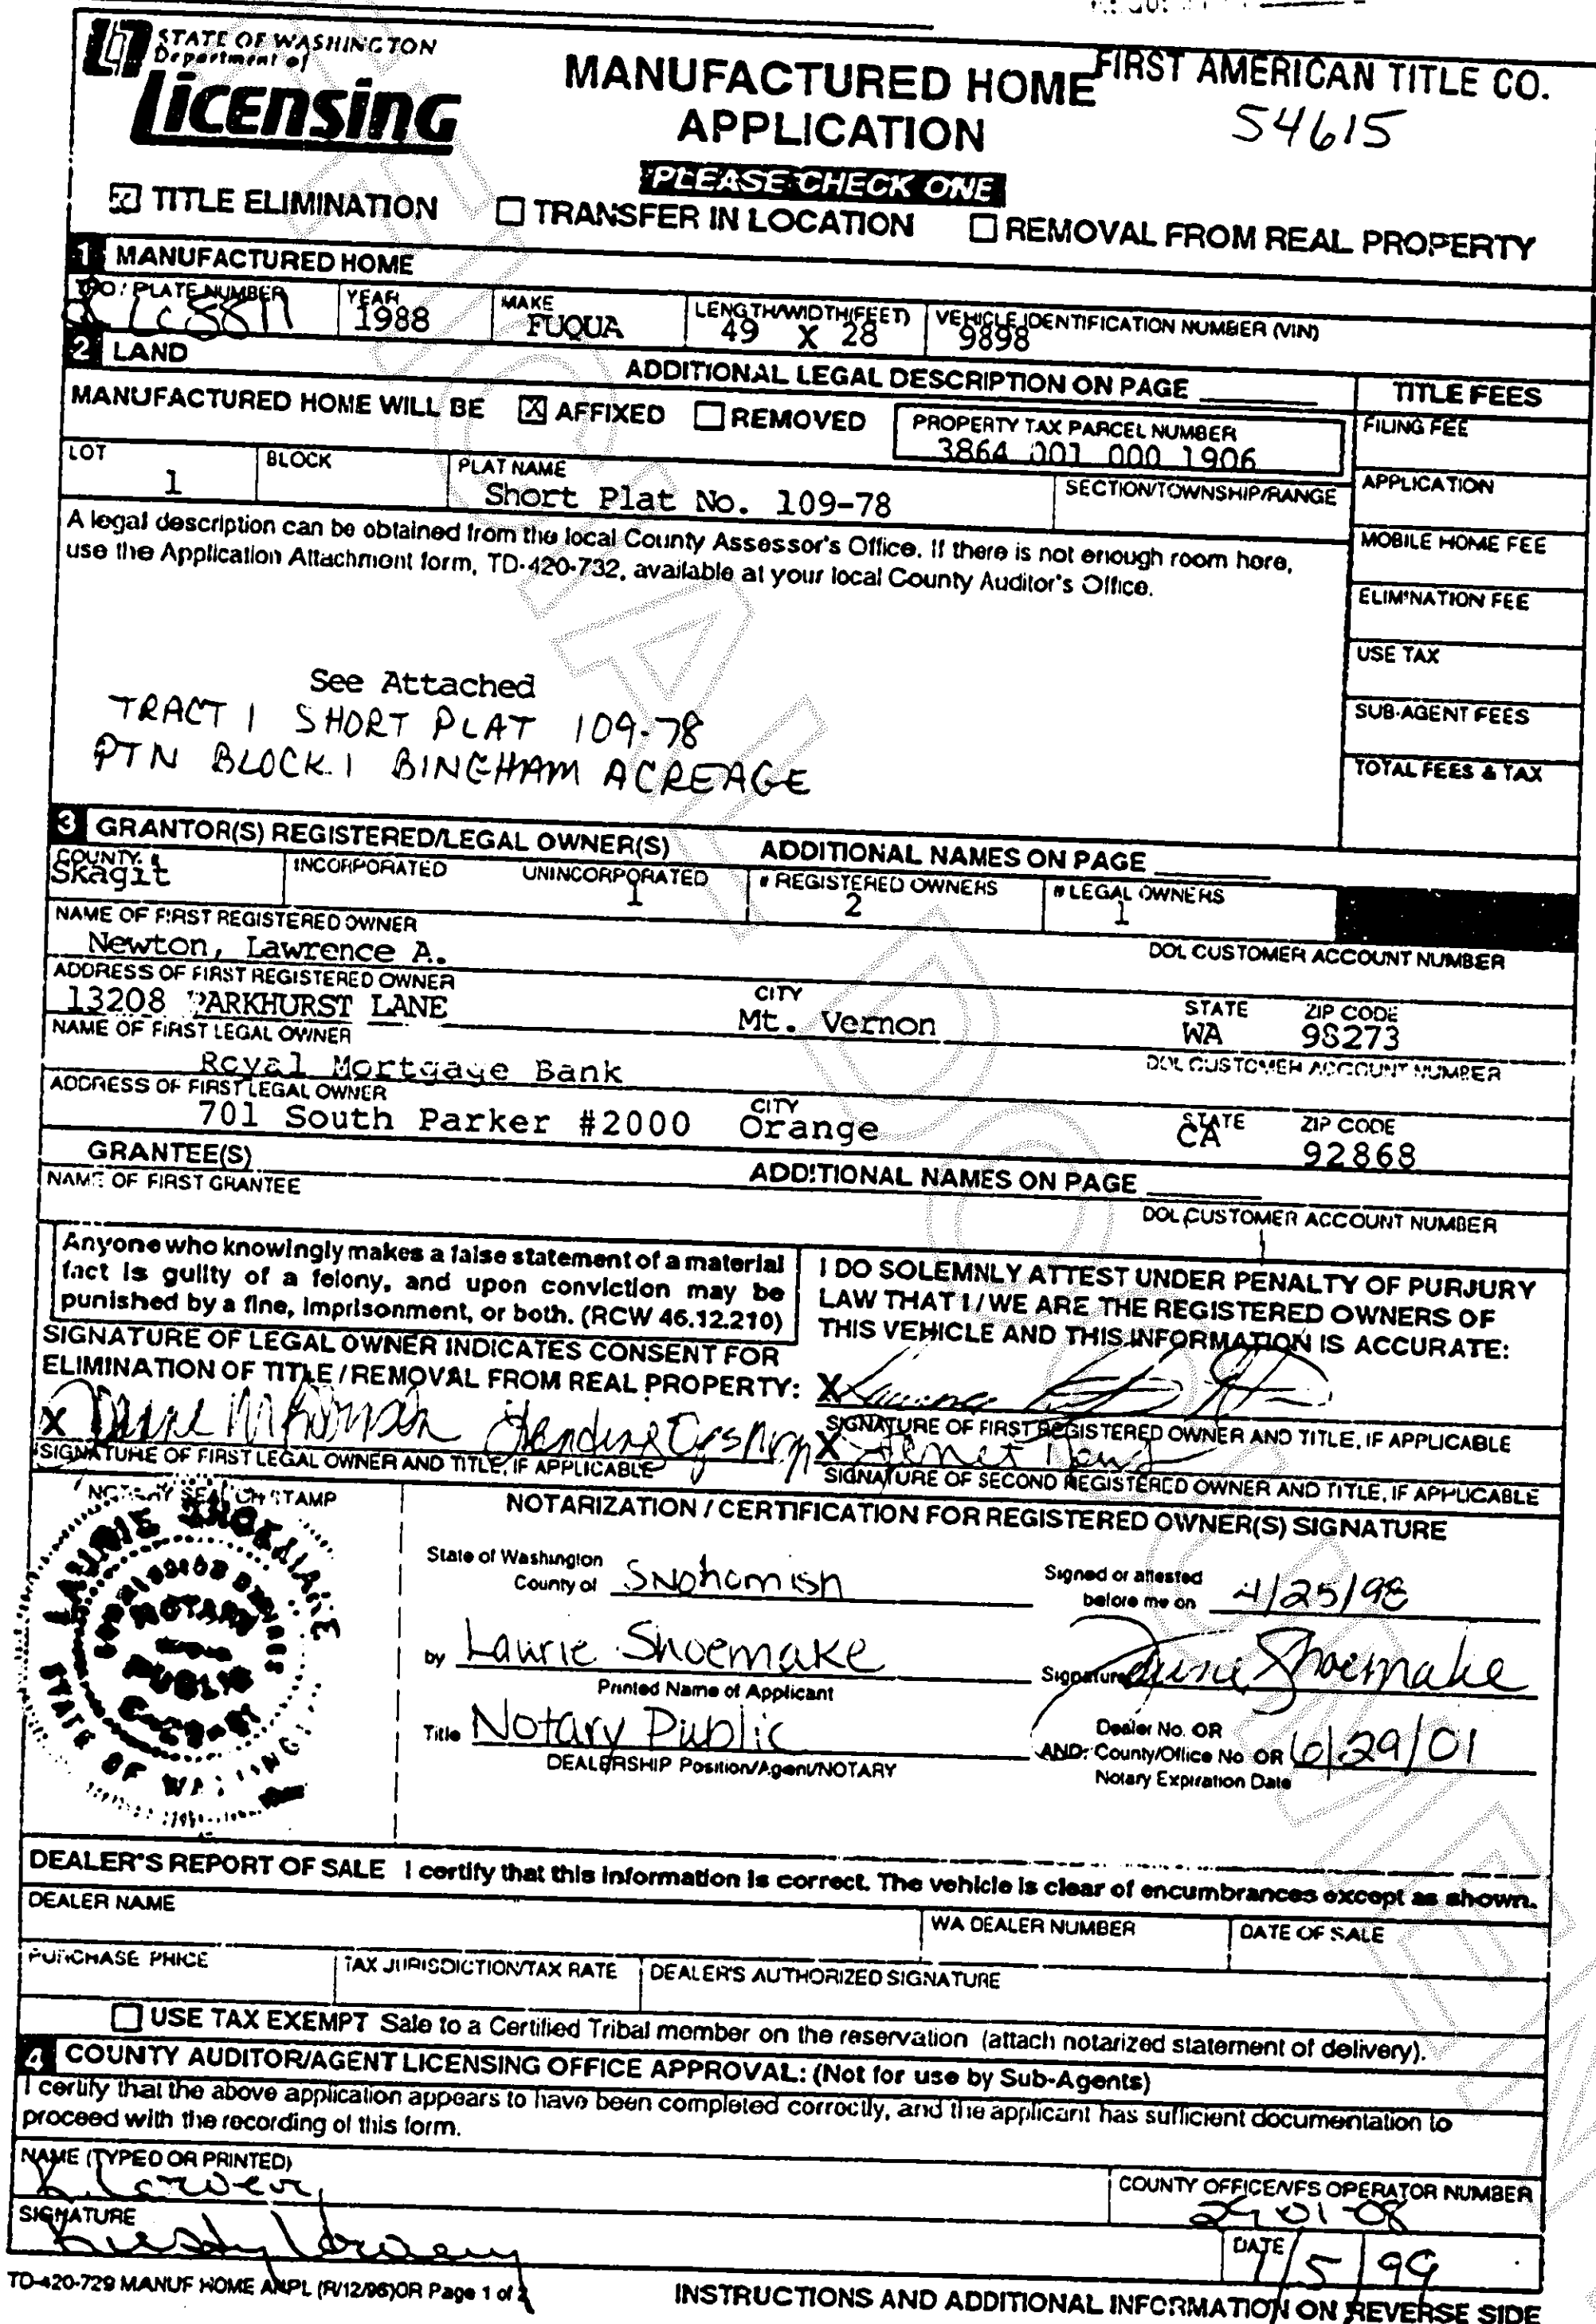 STATE OF WASHINGTON
Department of
Licensing
MANUFACTURED HOME
APPLICATION
FIRST AMERICAN TITLE CO.
54615
PLEASE CHECK ONE
☒ TITLE ELIMINATION ☐ TRANSFER IN LOCATION ☐ REMOVAL FROM REAL PROPERTY
1 MANUFACTURED HOME
TPO / PLATE NUMBER YEAR MAKE LENGTH/WIDTH(FEET) VEHICLE IDENTIFICATION NUMBER (VIN)
1988 FUQUA 49 X 28 9898
2 LAND
ADDITIONAL LEGAL DESCRIPTION ON PAGE TITLE FEES
MANUFACTURED HOME WILL BE ☒ AFFIXED ☐ REMOVED
PROPERTY TAX PARCEL NUMBER
3864 001 000 1906
FILING FEE
LOT BLOCK PLAT NAME SECTION/TOWNSHIP/RANGE
1 Short Plat No. 109-78
APPLICATION
A legal description can be obtained from the local County Assessor's Office. If there is not enough room here,
use the Application Attachment form, TD-420-732, available at your local County Auditor's Office.
MOBILE HOME FEE
ELIMINATION FEE
USE TAX
SUB-AGENT FEES
TOTAL FEES & TAX
See Attached
TRACT 1 SHORT PLAT 109-78
PTN BLOCK 1 BINGHAM ACREAGE
3 GRANTOR(S) REGISTERED/LEGAL OWNER(S) ADDITIONAL NAMES ON PAGE
COUNTY INCORPORATED UNINCORPORATED # REGISTERED OWNERS # LEGAL OWNERS
Skagit 1 2 1
NAME OF FIRST REGISTERED OWNER DOL CUSTOMER ACCOUNT NUMBER
Newton, Lawrence A.
ADDRESS OF FIRST REGISTERED OWNER CITY STATE ZIP CODE
13208 PARKHURST LANE Mt. Vernon WA 98273
NAME OF FIRST LEGAL OWNER DOL CUSTOMER ACCOUNT NUMBER
Royal Mortgage Bank
ADDRESS OF FIRST LEGAL OWNER CITY STATE ZIP CODE
701 South Parker #2000 Orange CA 92868
GRANTEE(S) ADDITIONAL NAMES ON PAGE
NAME OF FIRST GRANTEE DOL CUSTOMER ACCOUNT NUMBER
Anyone who knowingly makes a false statement of a material
fact is guilty of a felony, and upon conviction may be
punished by a fine, imprisonment, or both. (RCW 46.12.210)
SIGNATURE OF LEGAL OWNER INDICATES CONSENT FOR
ELIMINATION OF TITLE / REMOVAL FROM REAL PROPERTY:
X
SIGNATURE OF FIRST LEGAL OWNER AND TITLE, IF APPLICABLE
I DO SOLEMNLY ATTEST UNDER PENALTY OF PURJURY
LAW THAT I / WE ARE THE REGISTERED OWNERS OF
THIS VEHICLE AND THIS INFORMATION IS ACCURATE:
X
SIGNATURE OF FIRST REGISTERED OWNER AND TITLE, IF APPLICABLE
X
SIGNATURE OF SECOND REGISTERED OWNER AND TITLE, IF APPLICABLE
NOTARY SEAL OR STAMP
NOTARY
PUBLIC
STATE OF
NOTARIZATION / CERTIFICATION FOR REGISTERED OWNER(S) SIGNATURE
State of Washington
County of Snohomish
Signed or attested
before me on 4/25/98
by Laurie Shoemake
Printed Name of Applicant
Signature Laurie Shoemake
Title Notary Public
DEALERSHIP Position/Agent/NOTARY
Dealer No. OR
AND: County/Office No. OR 6/29/01
Notary Expiration Date
DEALER'S REPORT OF SALE I certify that this information is correct. The vehicle is clear of encumbrances except as shown.
DEALER NAME WA DEALER NUMBER DATE OF SALE
PURCHASE PRICE TAX JURISDICTION/TAX RATE DEALER'S AUTHORIZED SIGNATURE
☐ USE TAX EXEMPT Sale to a Certified Tribal member on the reservation (attach notarized statement of delivery).
4 COUNTY AUDITOR/AGENT LICENSING OFFICE APPROVAL: (Not for use by Sub-Agents)
I certify that the above application appears to have been completed correctly, and the applicant has sufficient documentation to
proceed with the recording of this form.
NAME (TYPED OR PRINTED) COUNTY OFFICE/VFS OPERATOR NUMBER
SIGNATURE DATE
TD-420-729 MANUF HOME APPL (R/12/96)OR Page 1 of 2
INSTRUCTIONS AND ADDITIONAL INFORMATION ON REVERSE SIDE